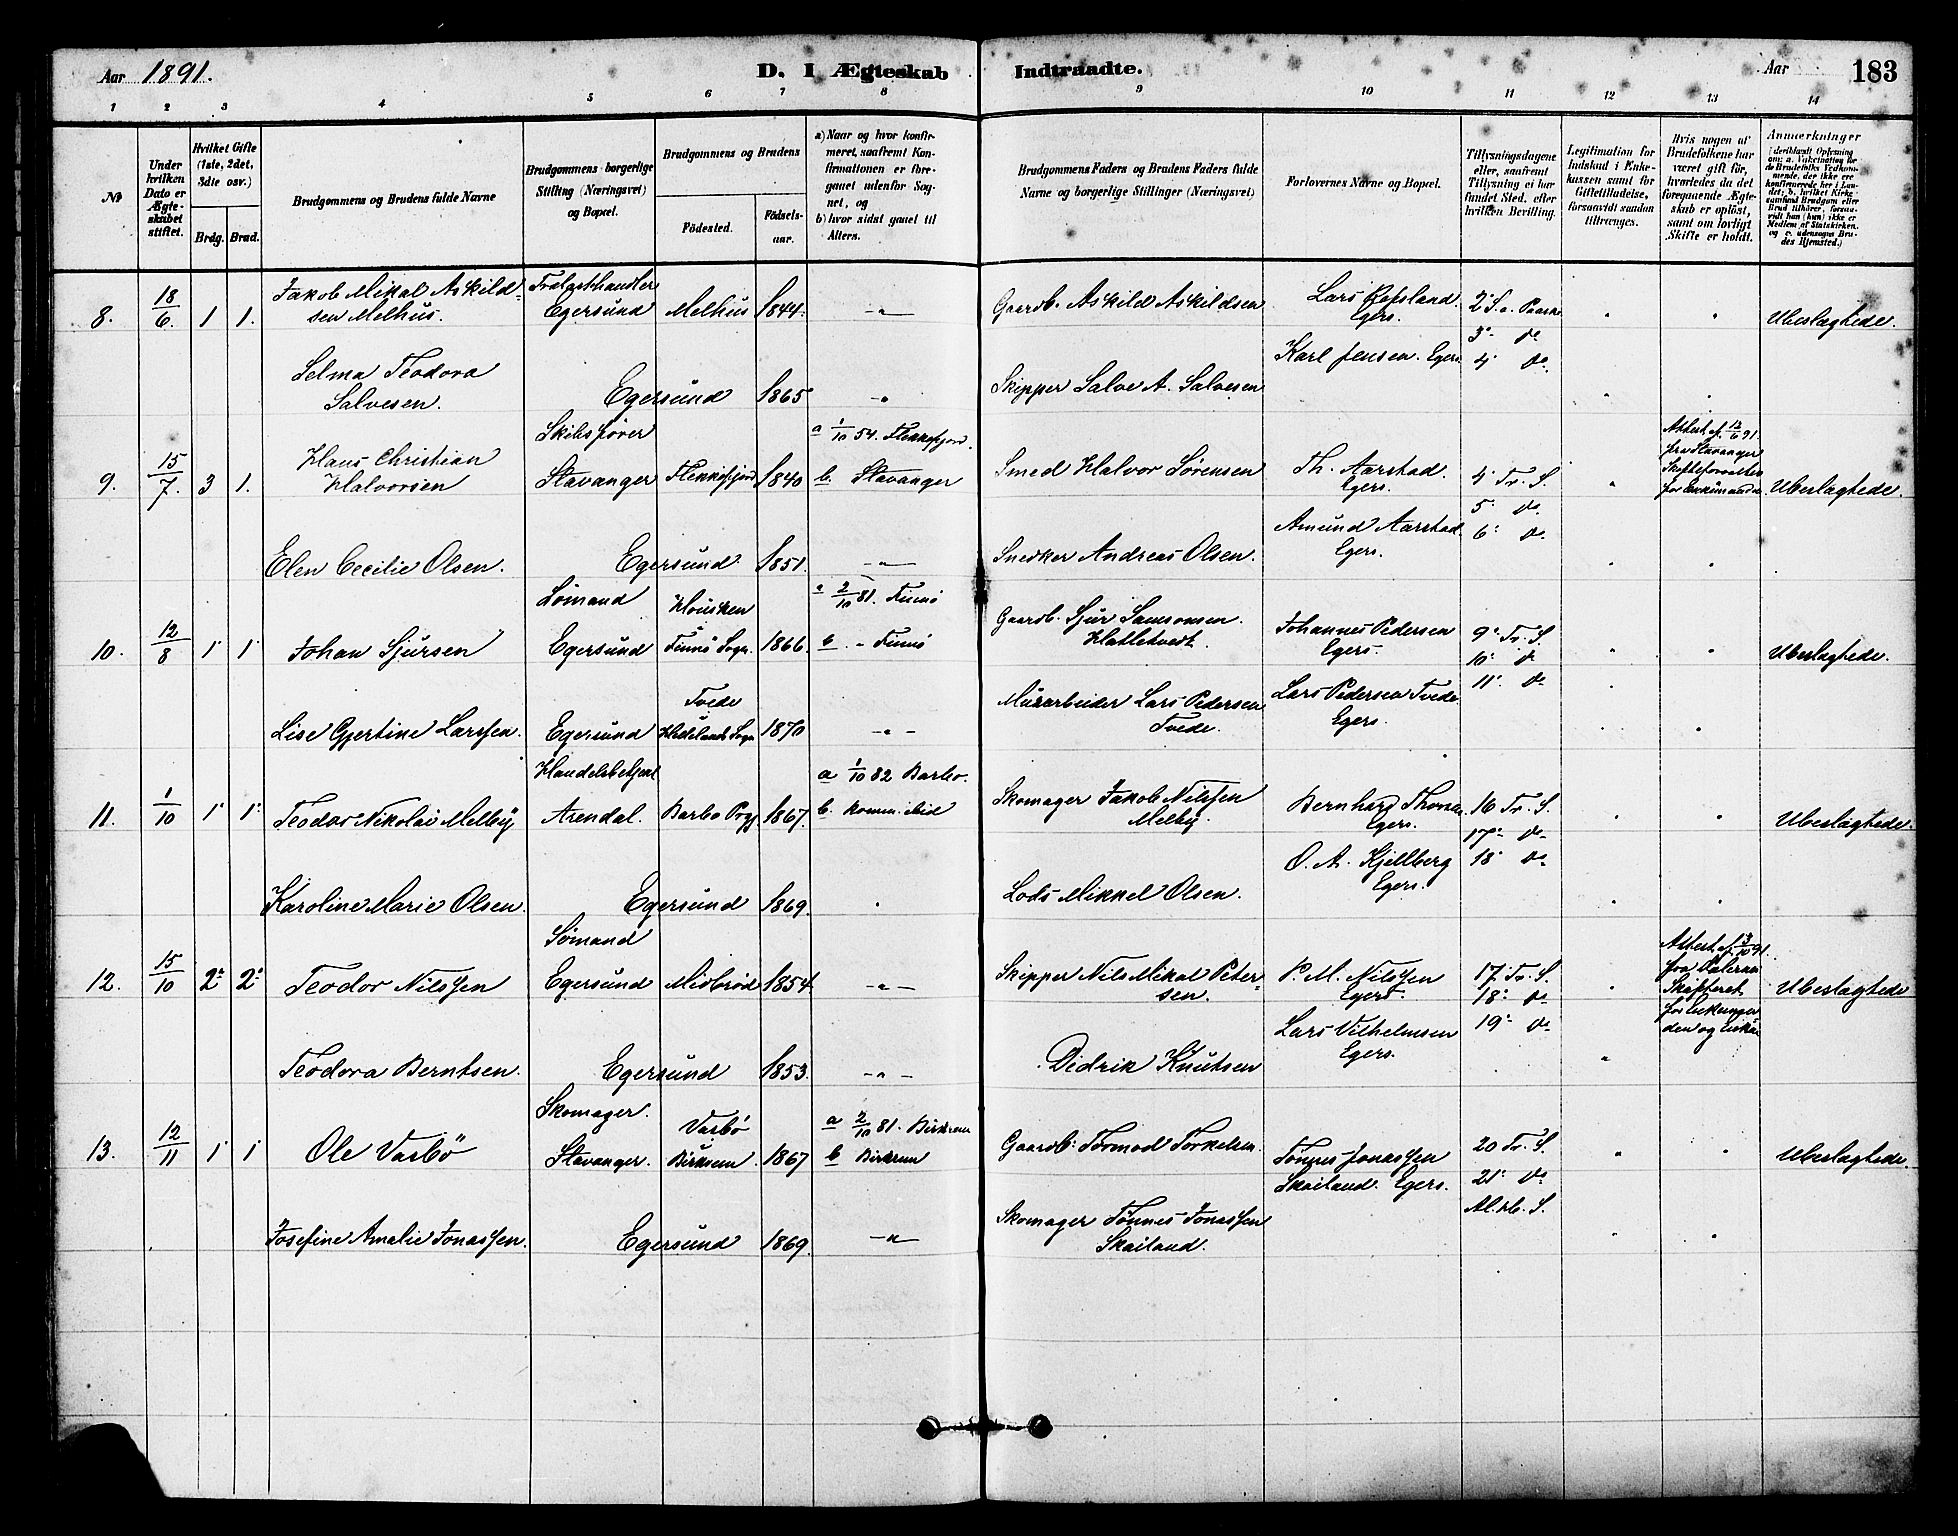 Aar 1891.
D. I Ægteskab Indtraadte.
Aar 183
1 2 3 4 5 6 7 8 9 10 11 12 13 14
№
Under hvilken Dato er Ægteskabet stiftet.
Hvilket Gifte (1ste, 2det, 3die osv.)
Brdg. Brud.
Brudgommens og Brudens fulde Navne
Brudgommens borgerlige Stilling (Næringsvei) og Bopæl.
Brudgommens og Brudens
Födested.
Födselsaar.
a) Naar og hvor konfirmeret, saafremt Konfirmationen er foregaaet udenfor Sognet, og
b) hvor sidst gaaet til Alters.
Brudgommens Faders og Brudens Faders fulde Navne og borgerlige Stillinger (Næringsvei)
Forlovernes Navne og Bopæl.
Tillysningsdagene eller, saafremt Tillysning ei har fundet Sted, efter hvilken Bevilling.
Legitimation for Indskud i Enkekassen samt for Giftetilladelse, forsaavidt saadan tiltrænges.
Hvis nogen af Brudefolkene har været gift før, hvorledes da det foregaaende Ægteskab er oplöst, samt om lovligt Skifte er holdt.
Anmerkninger
8. 18/6. 1 1. Jakob Mikal Askildsen Melhus. Trælasthandler Egersund Melhus 1844. -„- Gaardb. Askild Askildsen Lars Refsland. Egers. 2' S. e. Paaske 3' do 4' do Ubeslægtede.
Selma Teodora Salvesen. Egersund 1865 -„- Skipper Salve A. Salvesen Karl Jensen. Egers.
9. 15/7. 3 1. Hans Christian Halvorsen Skibsfører Stavanger Flekkefjord 1840 a 1/10 54. Flekkefjord. b. Stavanger Smed Halvor Sørensen Th. Aarstad. Egers. 4' Tr. S. 5' do 6' do Attest af 12/6 91. fra Stavanger Skifteforvalter for Enkemanden Ubeslægtede.
Elen Cecilie Olsen. Egersund 1851. -„- Snedker Andreas Olsen. Amund Aarstad. Egers.
10. 12/8 1' 1' Johan Sjursen Sømand Egersund Hausken Finnø Sogn. 1866. a 2/10 81. Finnø b. -„- Finnø Gaardb. Sjur Samsonsen Hatletvedt. Johannes Pedersen Egers. 9' Tr. S. 10' do 11' do Ubeslægtede.
Lise Gjertine Larssen. Egersund Tvede Hetlands Sogn 1870 -„- Murarbeider Lars Pedersen Tvede. Lars Pedersen Tvede. Egers.
11. 1/10 1' 1' Teodor Nikolai Melby Handelsbetjent Arendal. Barbo Prgj. 1867. a 1/10 82 Barbo. b. komm. ibid Skomager Jakob Nilssen Melby. Bernhard Thorsen Egers. 16 Tr. S. 17' do 18' do Ubeslægtede.
Karoline Marie Olsen. Egersund 1869. Lods Mikkel Olsen. O. A. Kjellberg Egers.
12. 15/10 2' 2' Teodor Nilssen Sømand Egersund Midbrød 1854 -„- Skipper Nils Mikal Petersen. P. M. Nilssen Egers. 17' Tr. S. 18' do 19' do Attest af 13/10 91. fra Dalernes Skifteret for Enkemanden og Enken Ubeslægtede
Teodora Berntsen. Egersund 1853. -„- Didrik Knutsen Lars Vilhelmsen Egers.
13. 12/11 1' 1 Ole Vasbø Skomager. Stavanger. Vasbø Birkrem 1867 a 2/10 81. Birkrem b Birkrem Gaardb. Tormod Torkelsen. Tønnes Jonassen Skailand. Egers. 20 Tr. S. 21' do Al. kb. S. Ubeslægtede.
Josefine Amalie Jonassen. Egersund 1869. -„- Skomager Tønnes Jonassen Skailand.